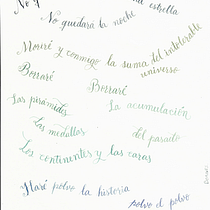 No y na estrella
No quedará la noche
Moriré y conmigo la suma del intolerable
universo
Borraré Borraré
Las pirámides
La acumulación
Las medallas
del pasado
Los continentes y las caras
Haré polvo la historia
polvo el polvo